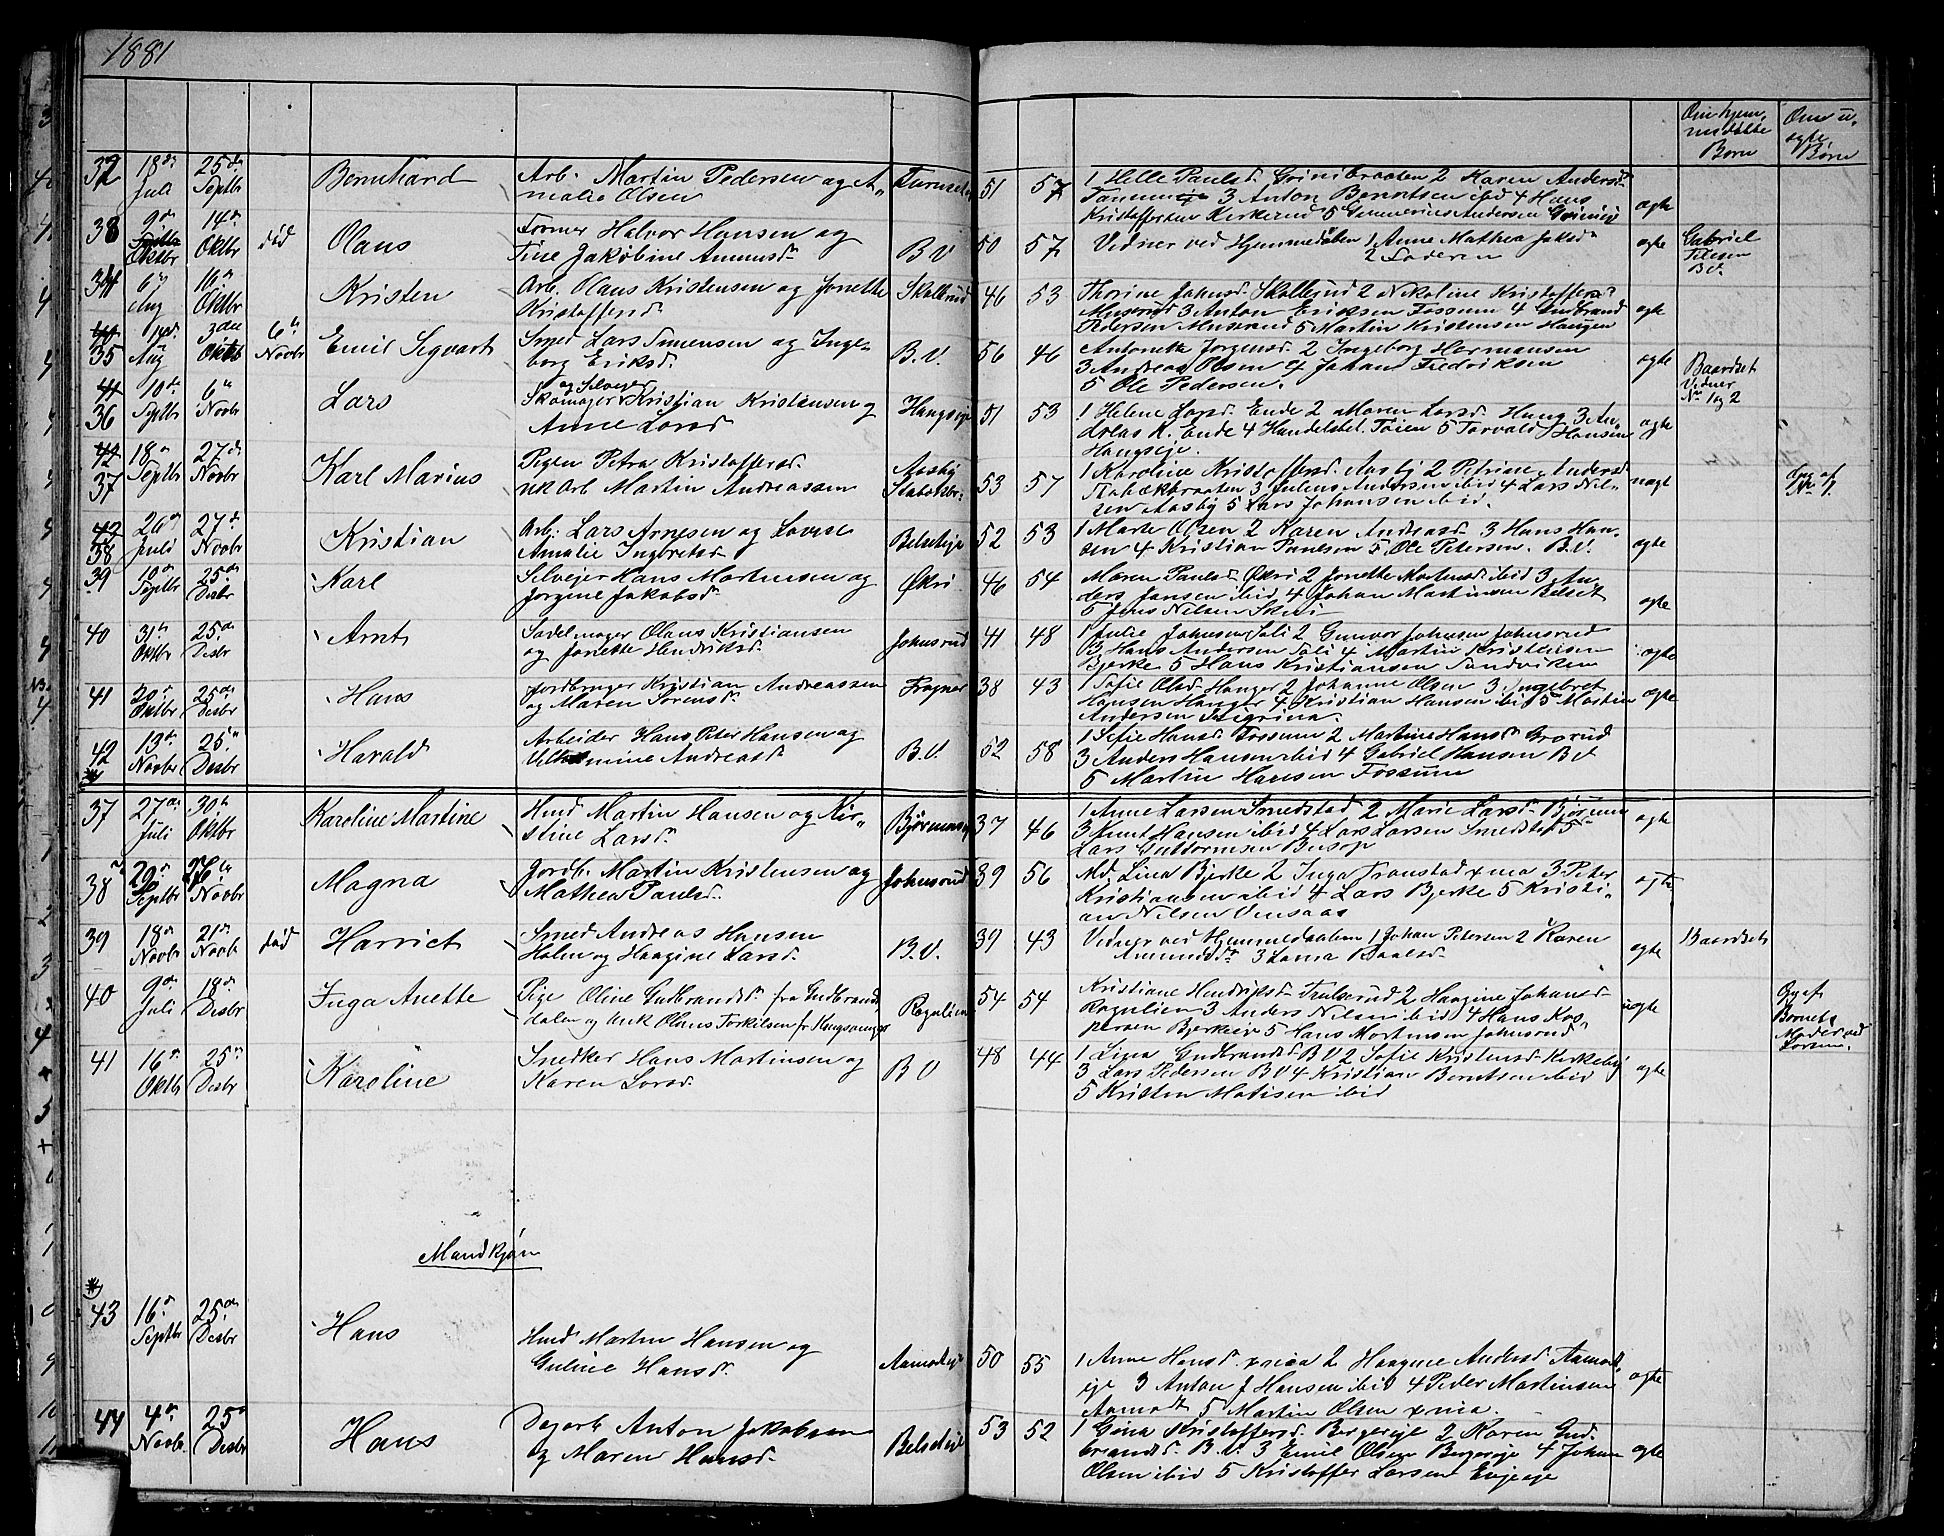 1881
Om hjem-
medøbte
Børn
Om u-
ægte
Børn
32 18de Juli 25de Septbr Bernhard Arb. Martin Pedersen og A-
malie Olsen
51 57 1 Helle Paulsd. Grinibraaten 2 Karen Andersd.
3 Anton Berntsen ibid 4 Hans
Kristoffersen Kerkerud 5 Andersen
ægte
38 9de Oktbr 14de Oktbr død Olaus Former Halvor Hansen og
Tine Jakobine Amunsd. B.V.
50 57 Vidner ved Hjemmedåben 1 Anne Mathea Jaksd.
2 Faderen
ægte Gabriel
B.V.
34 6te Aug 16de Oktbr Kristen Arb. Olaus Kristensen og Jonette
Kristoffersd. Skollerud
46 53 Thorine Johnsd. Skollerud 2 Nikoline Kristoffersd.
Muserud 3 Anton Eriksen Fossum 4 Gudbrand
Pedersen Muserud 5 Martin Kristensen Haugen
ægte
35 14de Aug 3die Oktb 6te Novbr Emil Sigvart Smed Lars Simensen og Inge-
borg Eriksd. B.V.
56 46 Antonette Jørgensd. 2 Ingeborg Hermansen
3 Andreas Olsen 4 Johan Fredriksen
5 Ole Pedersen.
ægte Baardset
Vidner
No 1 og 2
36 10de Septbr 6te Novbr Lars og Selveier
Skomager Kristian Kristensen og
Anne Larsd. Haugseje
51 53 1 Helene Larsd. Ende 2 Maren Larsd. Haug 3 An-
dreas K. Ende 4 Handelsbet. Tøien 5 Torvald Hansen
Haugseje.
ægte
37 18de Septbr 27de Novbr Karl Marius Pigen Petra Kristoffersd.
UK Arb Martin Andreassen Aasby
53 57 1 Karoline Kristoffersd. Aasby 2 Petrine Andersd.
Stabækbraaten 3 Julius Andersen ibid 4 Lars Niel-
sen Aasby 5 Lars Johansen ibid.
uægte
38 26de Juli 27de Novbr Kristian Arb. Lars Arnesen og Lovise
Amalie Ingbretsd. Belseteje
52 53 1 Marte Olsen 2 Karen Andreasd. 3 Hans Han-
sen 4 Kristian Paulsen 5 Ole Petersen. B.V.
ægte
39 10de Septbr 25de Desbr Karl Selvejer Hans Mortensen og
Jorgine Jakobsd. Økri
46 54 Maren Paulsd. Økri 2 Jonette Mortensd. ibid 3 An-
ders Jansen ibid 4 Johan Martinsen Belset
5 Jens Nilsen Skui
ægte
40 31te Oktbr 25de Desbr Arnt Sadelmager Olaus Kristiansen
og Jonette Hendriksd. Johnsrud
41 48 1 Julie Johnsen Toli 2 Gunvor Johnsen Johnsrud
3 Hans Andersen Toli 4 Martin Kristensen
Bjerke 5 Hans Kristiansen Sandviken
ægte
41 20de Oktbr 25de Desbr Hans Jordbruger Kristian Andreassen
og Maren Sørensd. Frogner
38 43 1 Sofie Olsd. Hanger 2 Johanne Olsen 3 Ingebret
Hansen Hanger 4 Kristian Hansen ibid 5 Martin
Andersen
ægte
42 13de Novbr 25de Desbr Harald Arbeider Hans Peter Hansen og
Vilhelmine Andreasd. B.V.
52 58 1 Sefie Hansd. Fossum 2 Martine Hansd. Grorud
3 Anders Hansen ibid 4 Gabriel Hansen B.V.
5 Martin Hansen Fossum
37 27de Juli 30te Oktbr Karoline Martine Husd. Martin Hansen og Kir-
stine Larsd.
37 46 1 Anne Larsen Smedstad 2 Marie Larsd.
3 Knut Hansen ibid 4 Lars Larsen Smedstad 5
Lars Guttormsen Burop
ægte
38 29de Septbr 26de Novbr Magna Jordb. Martin Kristensen og
Mathea Paulsd. Johnsrud
39 56 Md. Lina Bjerke 2 Inga Transtad x nia 3 Peter
Kristiansen ibid 4 Lars Bjerke 5 Kristi-
an Nilsen Vensaas
ægte
39 18de Novbr 21de Novb. død Harriet Smed Andreas Hansen
Holen og Haagine Larsd. B.V.
39 43 Vidner ved Hjemmedaaben 1 Johan Petersen 2 Karen
Amundsd. 3 Lovisa Paalsd.
ægte Baardset
40 9de Juli 18de Desbr Inga Anette Pige Oline Gudbrandsd. fra Gudbrands-
dalen og Unk Olaus Torkilsen fr Kongsvinger
54 54 Kristiane Hendriksd. Tandberg 2 Haagine Johansd.
3 Anders Nilsen ibid 4 Hans Kas-
persen Bjerkeeje 5 Hans Mortensen Johnsrud
uægte Opg. af
Barnets
Moder ved
41 16de Oktbr 25de Desbr Karoline Snedker Hans Martinsen og
Karen Larsd. B.V.
48 44 1 Lina Gudbrandsd. B.V. 2 Sofie Kristensd. Kirkeby
3 Lars Pedersen B.V. 4 Kristian Berntsen ibid
5 Kristen Matisen ibid
ægte
Mandkjøn
43 16de Septbr 25de Desbr Hans Husd. Martin Hansen og
Guline Hansd.
50 55 1 Anne Hansd. x nia 2 Haagine Andersd. Aamodt-
eje 3 Anton J Hansen ibid 4 Peder Martinsen
Aamodt 5 Martin Olsen x nia.
ægte
44 4de Novb. 25de Desbr Hans Dagarb. Anton Jakobsen
og Maren Hansd. Belseteje
53 52 1 Gina Kristoffersd. Bergereje 2 Karen Gud-
brandsd. B.V. 3 Emil Olsen Bergereje 4 Johan
Olsen ibid 5 Kristoffer Larsen Enjeeje
ægte